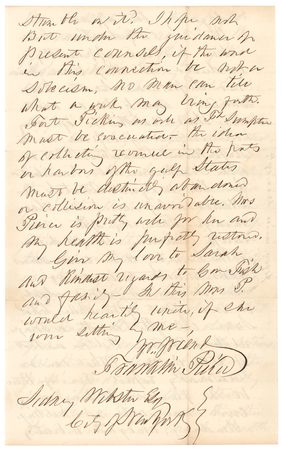 stumble on it? I hope not
But under the guidance of
present counsels, if the word
in this connection be not a
solecism, no man can tell
what a week may bring forth.
Fort Pickens as well as Ft. Sumpter
must be evacuated - the idea
of collecting revenue in the ports
or harbors of the gulf States
must be distinctly abandoned
or collision is unavoidable. Mrs
Pierce is pretty well for her and
my health is perfectly restored.
Give my love to Sarah
and kindest regards to Gov Fish
and family In this Mrs P.
would heartily unite, if she
were sitting by me,
Yr. friend
Franklin Pierce
Sidney Webster Esq
City of New York